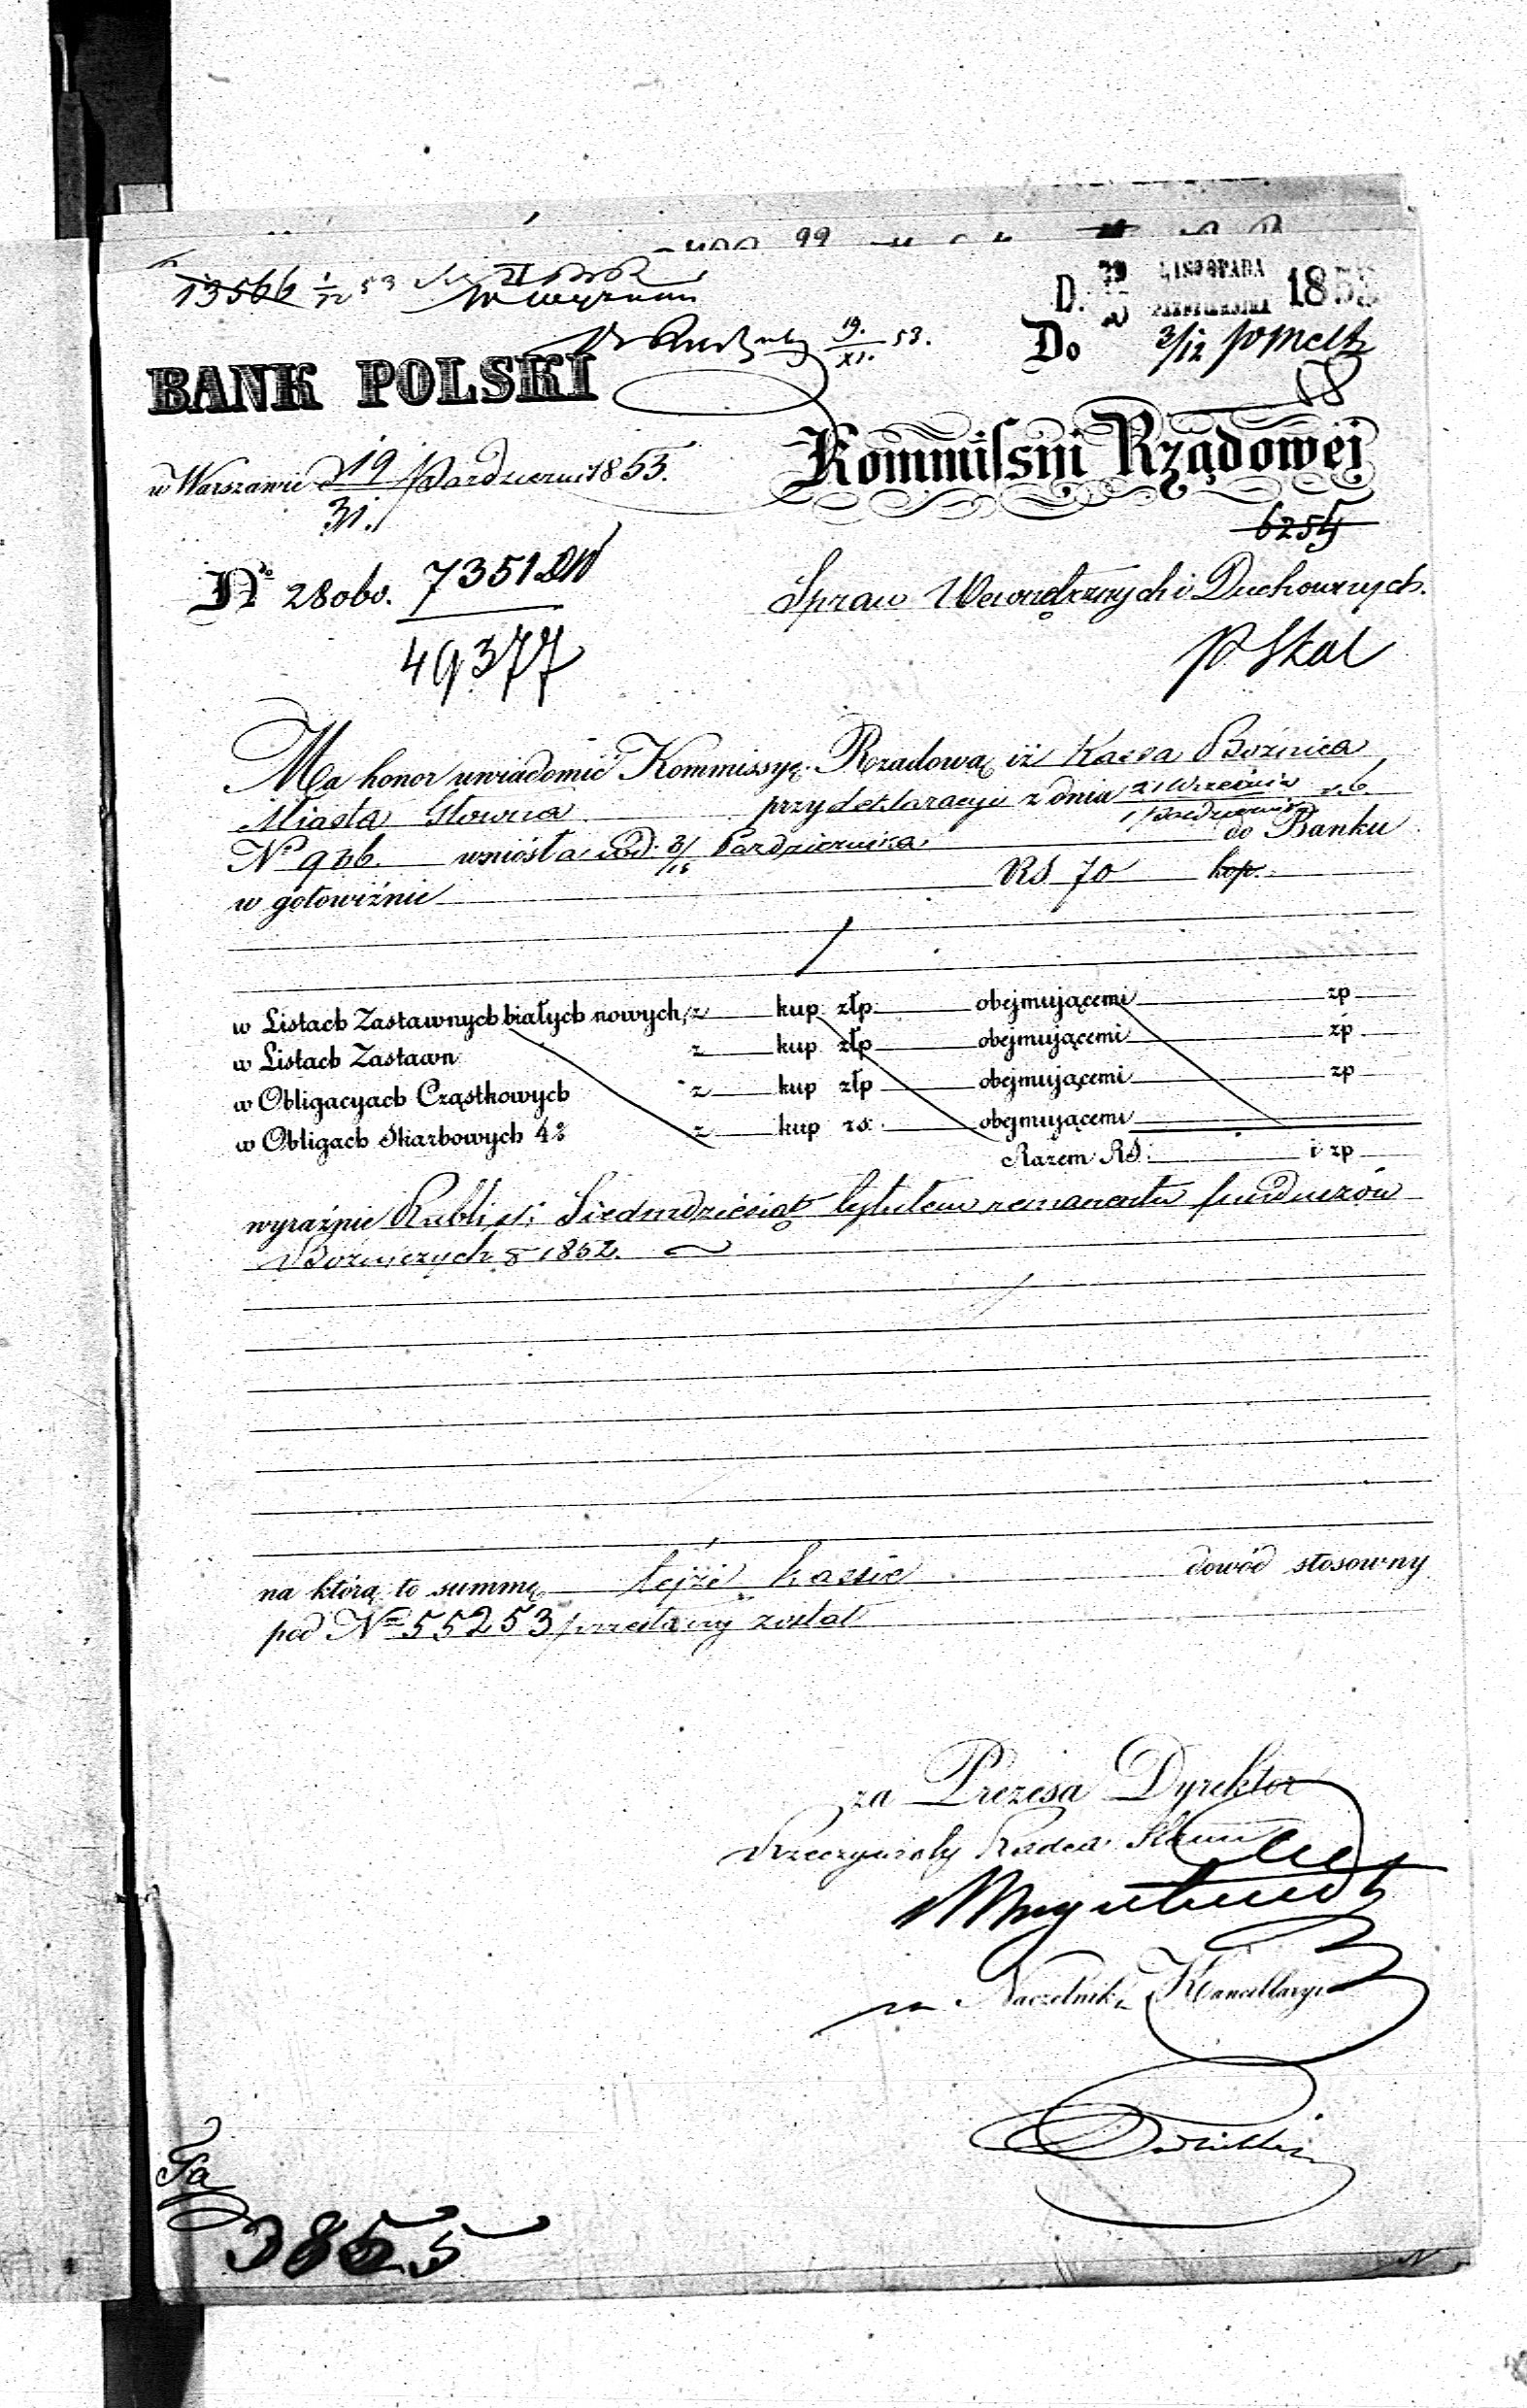 99
13566 1/12 53
D. LISTOPADA 1853
PAZDZIERNIKA
19./XI. 53.
Do 3/12
BANK POLSKI
18
w Warszawie d 19/31. Pazdziern 1853.
Kommissyi Rządowej
6254
No 28060. 7351 DW
49377
Spraw Wewnętrznych i Duchownych.
P Skal
Ma honor uwiadomić Kommissyę Rządową iż Kassa Boźnicza
Miasta Słowca przy deklaracyi z dnia 21 Września / 1 Pazdziernika r. b.
No 936. wniosła pod: 3/15 Pazdziernika do Banku
w gotowiźnie RS 70 kop.
w Listach Zastawnych białych nowych, z kup. złp. obejmującemi zp
w Listach Zastawn z kup złp obejmującemi zp
w Obligacyach Cząstkowych z kup złp obejmującemi zp
w Obligach Skarbowych 4% z kup rs: obejmującemi
Razem RS: i zp
wyraźnie Rubli sr: Siedmdziesiąt tytułem remanentu funduszów
Bożniczych z 1852.
na którą to summę tejże kassie dowód stosowny
pod No 55253 przesłany został
za Prezesa Dyrektor
Rzeczywisty Radca Stanu
za Naczelnika Kancellaryi
3855